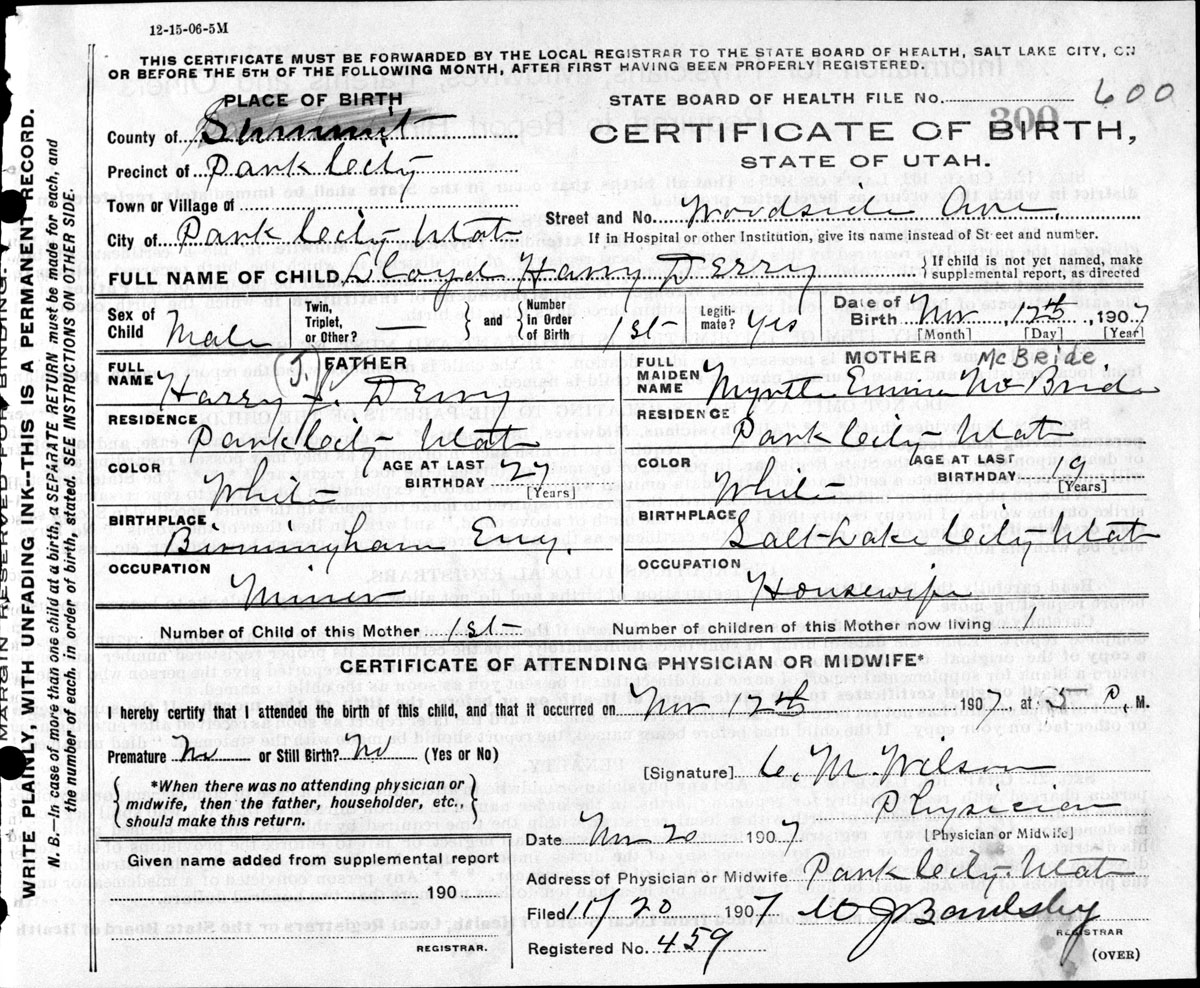 12-15-06-5M
THIS CERTIFICATE MUST BE FORWARDED BY THE LOCAL REGISTRAR TO THE STATE BOARD OF HEALTH, SALT LAKE CITY, ON
OR BEFORE THE 5TH OF THE FOLLOWING MONTH, AFTER FIRST HAVING BEEN PROPERLY REGISTERED.
PLACE OF BIRTH
STATE BOARD OF HEALTH FILE No. 600
300
County of Summit
CERTIFICATE OF BIRTH,
STATE OF UTAH.
Precinct of Park City
Town or Village of
Street and No. Woodside Ave.
City of Park City Utah
If in Hospital or other Institution, give its name instead of Street and number.
FULL NAME OF CHILD Lloyd Harry Derry
{ If child is not yet named, make supplemental report, as directed
Sex of Child Male
Twin, Triplet, or Other? — } and { Number in Order of Birth 1st
Legitimate? Yes
Date of Birth Nov, 12th, 1907
[Month] [Day] [Year]
FATHER
FULL NAME Harry J. Derry
(J.)
RESIDENCE Park City Utah
COLOR White
AGE AT LAST BIRTHDAY 27
[Years]
BIRTHPLACE Birmingham Eng.
OCCUPATION Miner
MOTHER
McBride
FULL MAIDEN NAME Myrtle Emma McBride
RESIDENCE Park City Utah
COLOR White
AGE AT LAST BIRTHDAY 19
[Years]
BIRTHPLACE Salt Lake City Utah
OCCUPATION Housewife
Number of Child of this Mother 1st
Number of children of this Mother now living
CERTIFICATE OF ATTENDING PHYSICIAN OR MIDWIFE*
I hereby certify that I attended the birth of this child, and that it occurred on Nov 12th 1907, at 5 P. M.
Premature No or Still Birth? No (Yes or No)
{ *When there was no attending physician or midwife, then the father, householder, etc., should make this return. }
[Signature] C. M. Wilson
Physician
[Physician or Midwife]
Date Nov 20 1907
Given name added from supplemental report
190
REGISTRAR.
Address of Physician or Midwife. Park City Utah
Filed 11/20 1907 W J Bardsley
REGISTRAR
Registered No. 459
(OVER)
MARGIN RESERVED FOR BINDING.
WRITE PLAINLY, WITH UNFADING INK-THIS IS A PERMANENT RECORD.
N. B.—In case of more than one child at a birth, a SEPARATE RETURN must be made for each, and
the number of each, in order of birth, stated. SEE INSTRUCTIONS ON OTHER SIDE.